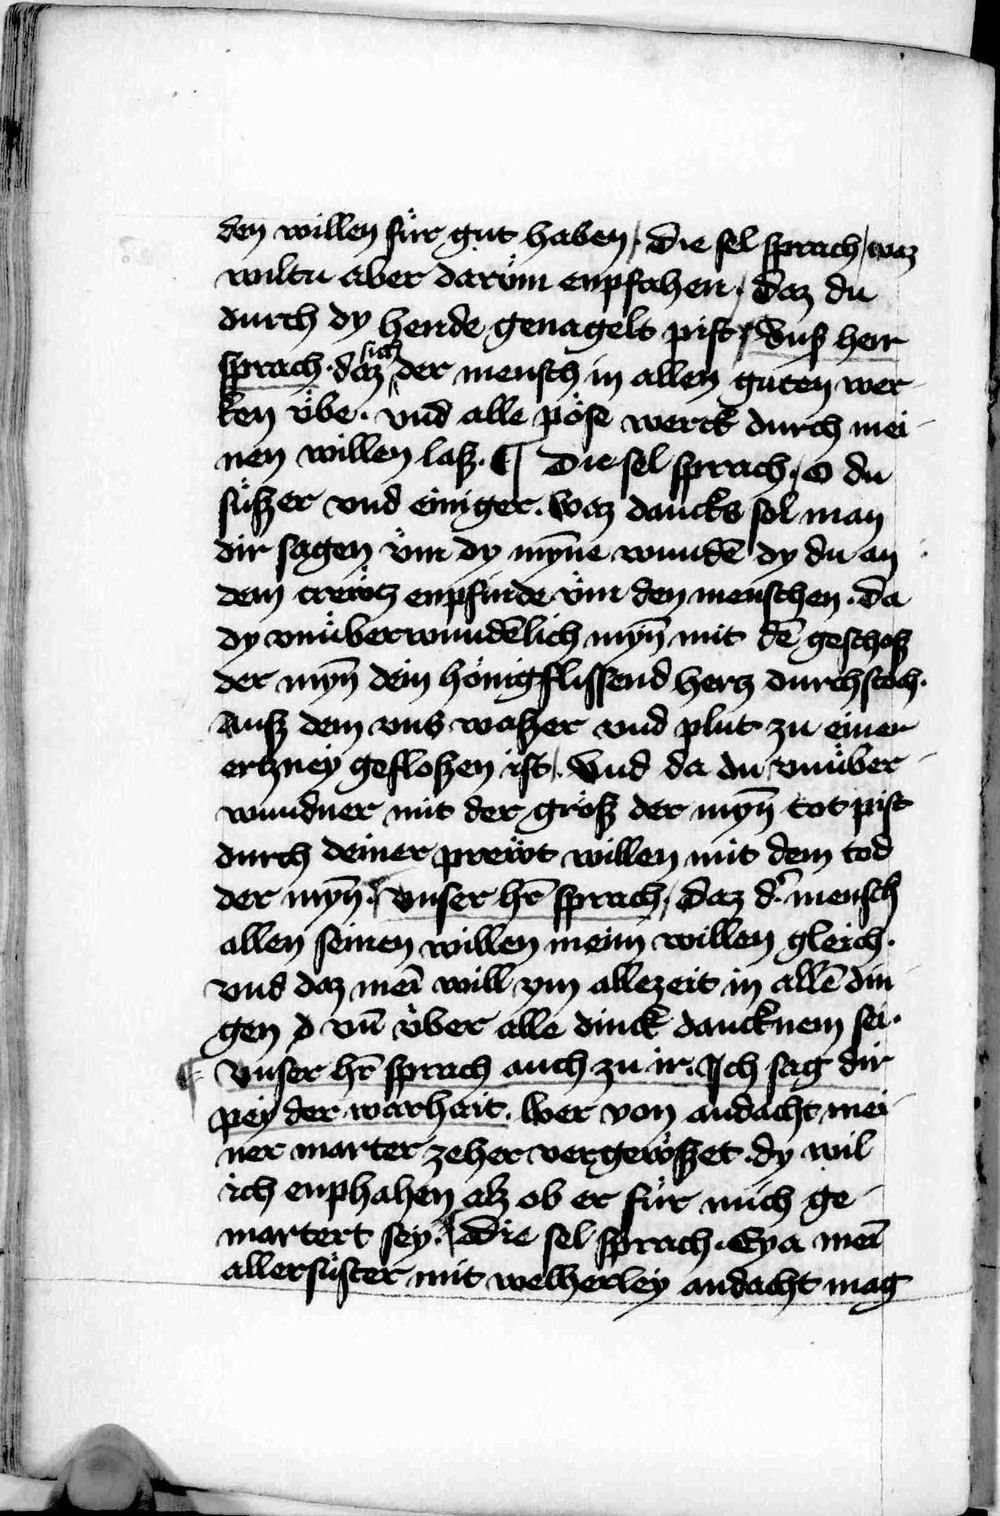 den willen für gut haben / Die sel sprach / waz
wiltu aber darüm enpfahen / Daz du
durch dy hende genagelt pist / Vnß herr
sprach · daz sich der mensch in allen guten wer-
ken übe · vnd alle pöse werck durch mei-
nen willen laß · ¶ Die sel sprach · O du
süßer vnd einiger · Waz dancks sol man
dir sagen üm dy mȳne wundē dy du an
dem crewtz enpfinde üm den menschen · Da
dy vnüberwundēlich mȳn mit dē geschoß
der mȳn dein hönigflissend hertz durchstach ·
Auß dem vns waßer vnd plut zu einer
ertzney gefloßen ist / Vnd da du vnüber-
wundner mit der größ der mȳn tot pist
durch deiner prewt willen mit dem tod
der mȳn · Vnser hr̄ sprach / Daz d' mensch
allen seinen willen meim willen gleich ·
vnd daz mēi will ym allezeit in allē din-
gen vn̄ über alle dinck dancknem sei ·
¶ Vnser hr̄ sprach auch zu ir · Ich sag dir
pey der warheit · Wer von andacht mei-
ner marter zeher vergewßet · dy wil
ich enphahen alz ob er für mich ge-
martert sey · Die sel sprach · Eya mēi
allersüster mit welherley andacht mag